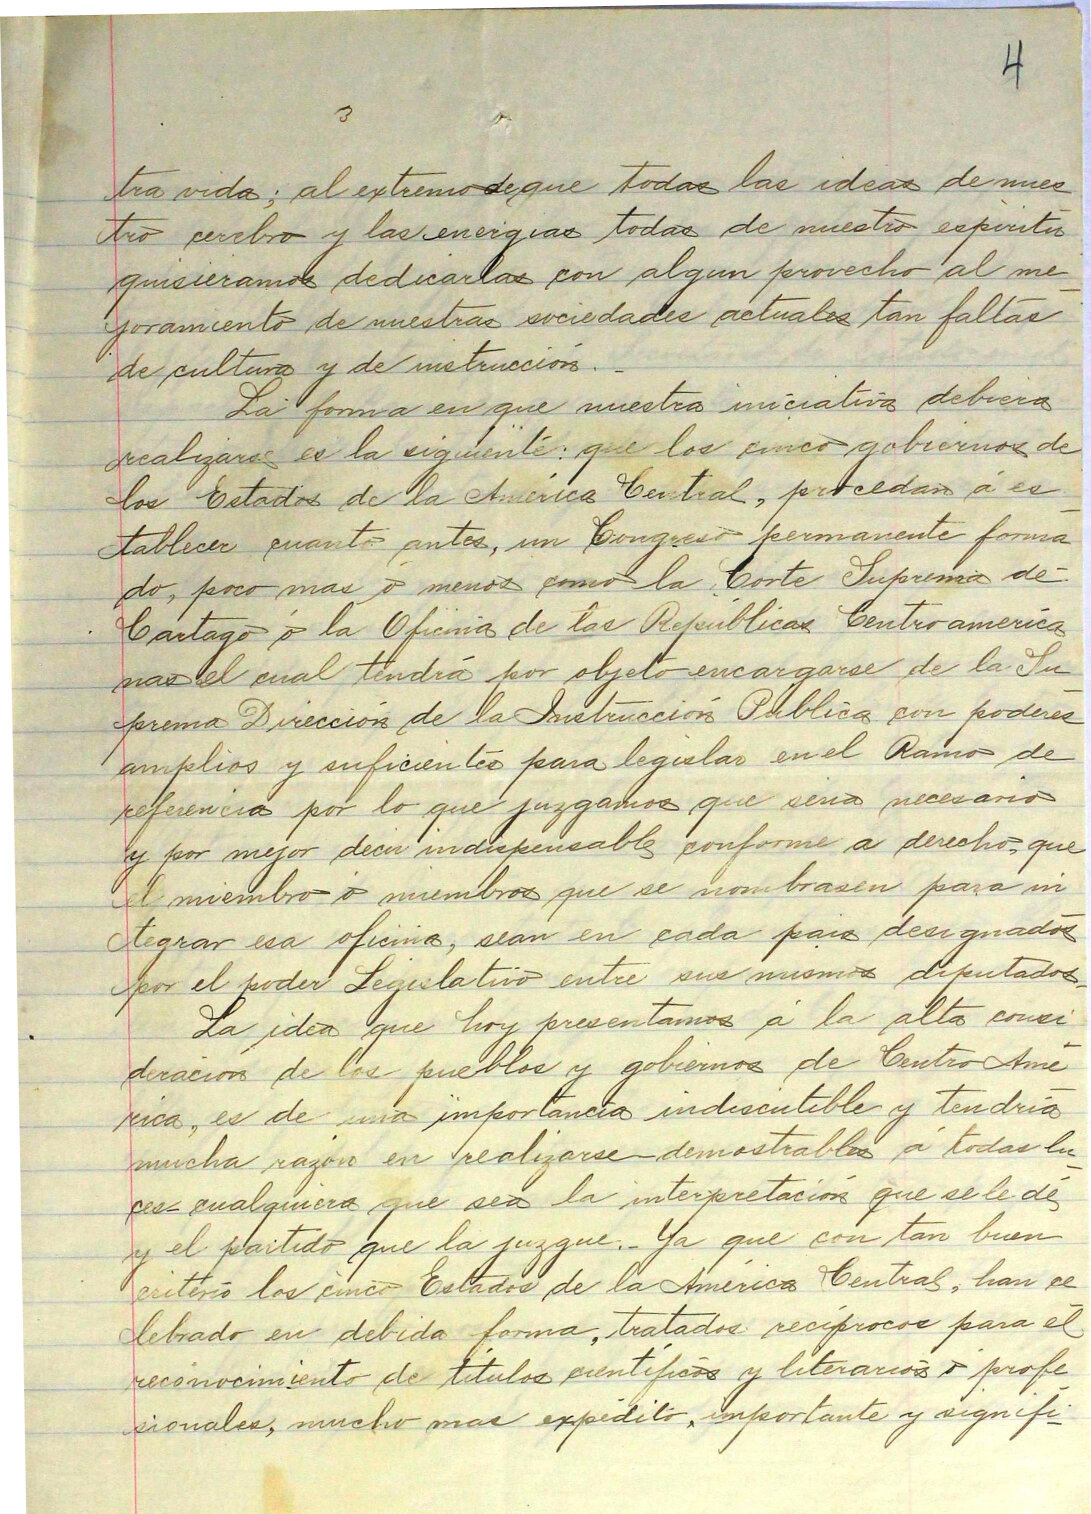 4
3
tra vida; al extremo de que todas las ideas de nues
tro cerebro y las energias todas de nuestro espiritu
quisieramos dedicarlas con algun provecho al me-
joramiento de nuestras sociedades actuales tan faltas
de cultura y de instrucción. -
La forma en que nuestra iniciativa debiera
realizarse es la siguiente: que los cinco gobiernos de
los Estados de la América Central, procedan á es-
tablecer cuanto antes, un Congreso permanente forma
do, poco mas ó menos como la Corte Suprema de
Cartago ó la Oficina de las Repúblicas Centroamerica
nas el cual tendrá por objeto encargarse de la Su-
prema Dirección de la Instrucción Pública con poderes
amplios y suficientes para legislar en el Ramo de
referencia por lo que juzgamos que seria necesario
y por mejor decir indispensable conforme a derecho, que
el miembro ó miembros que se nombrasen para in
tegrar esa oficina, sean en cada pais designados
por el poder Legislativo entre sus mismos diputados.-
La idea que hoy presentamos á la alta consi-
deración de los pueblos y gobiernos de Centro Amé
rica, es de una importancia indiscutible y tendría
mucha razón en realizarse - demostrables á todas lu-
ces - cualquiera que sea la interpretación que se le dé
y el partido que la juzgue. - Ya que con tan buen
criterio los cinco Estados de la América Central, han ce
lebrado en debida forma, tratados recíprocos para el
reconocimiento de títulos científicos y literarios ó profe
sionales, mucho mas expédito, importante y signifi-